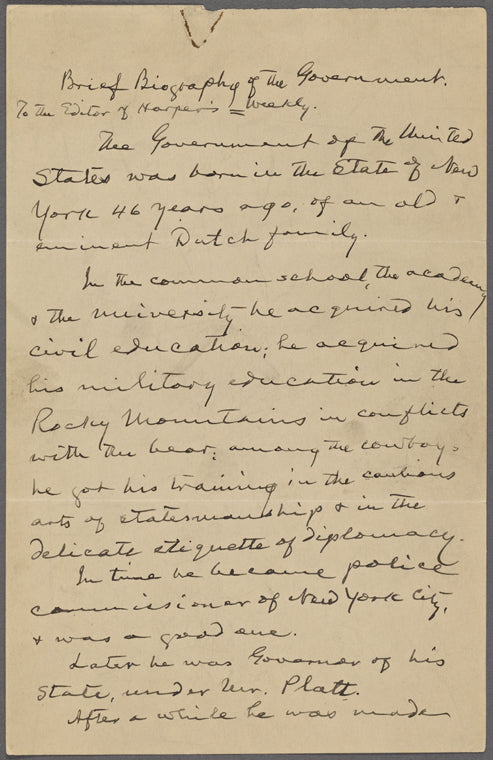 Brief Biography of the Government.
To the Editor of Harper's Weekly.
The Government of the United
States was born in the State of New
York 46 years ago, of an old &
eminent Dutch family.
In the common school, the academy
& the university he acquired his
civil education; he acquired
his military education in the
Rocky Mountains in conflicts
with the bear; among the cowboys
he got his training in the cautious
arts of statesmanship & in the
delicate etiquette of diplomacy.
In time he became police
commissioner of New York City,
& was a good one.
Later he was Governor of his
State, under Mr. Platt.
After a while he was made